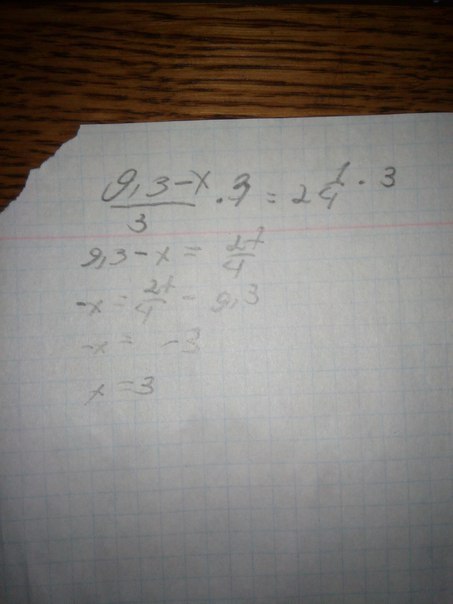 9,3-x/3 · 3 = 2 1/4 · 3
9,3 - x = 27/4
-x = 27/4 - 9,3
-x = -3
x = 3